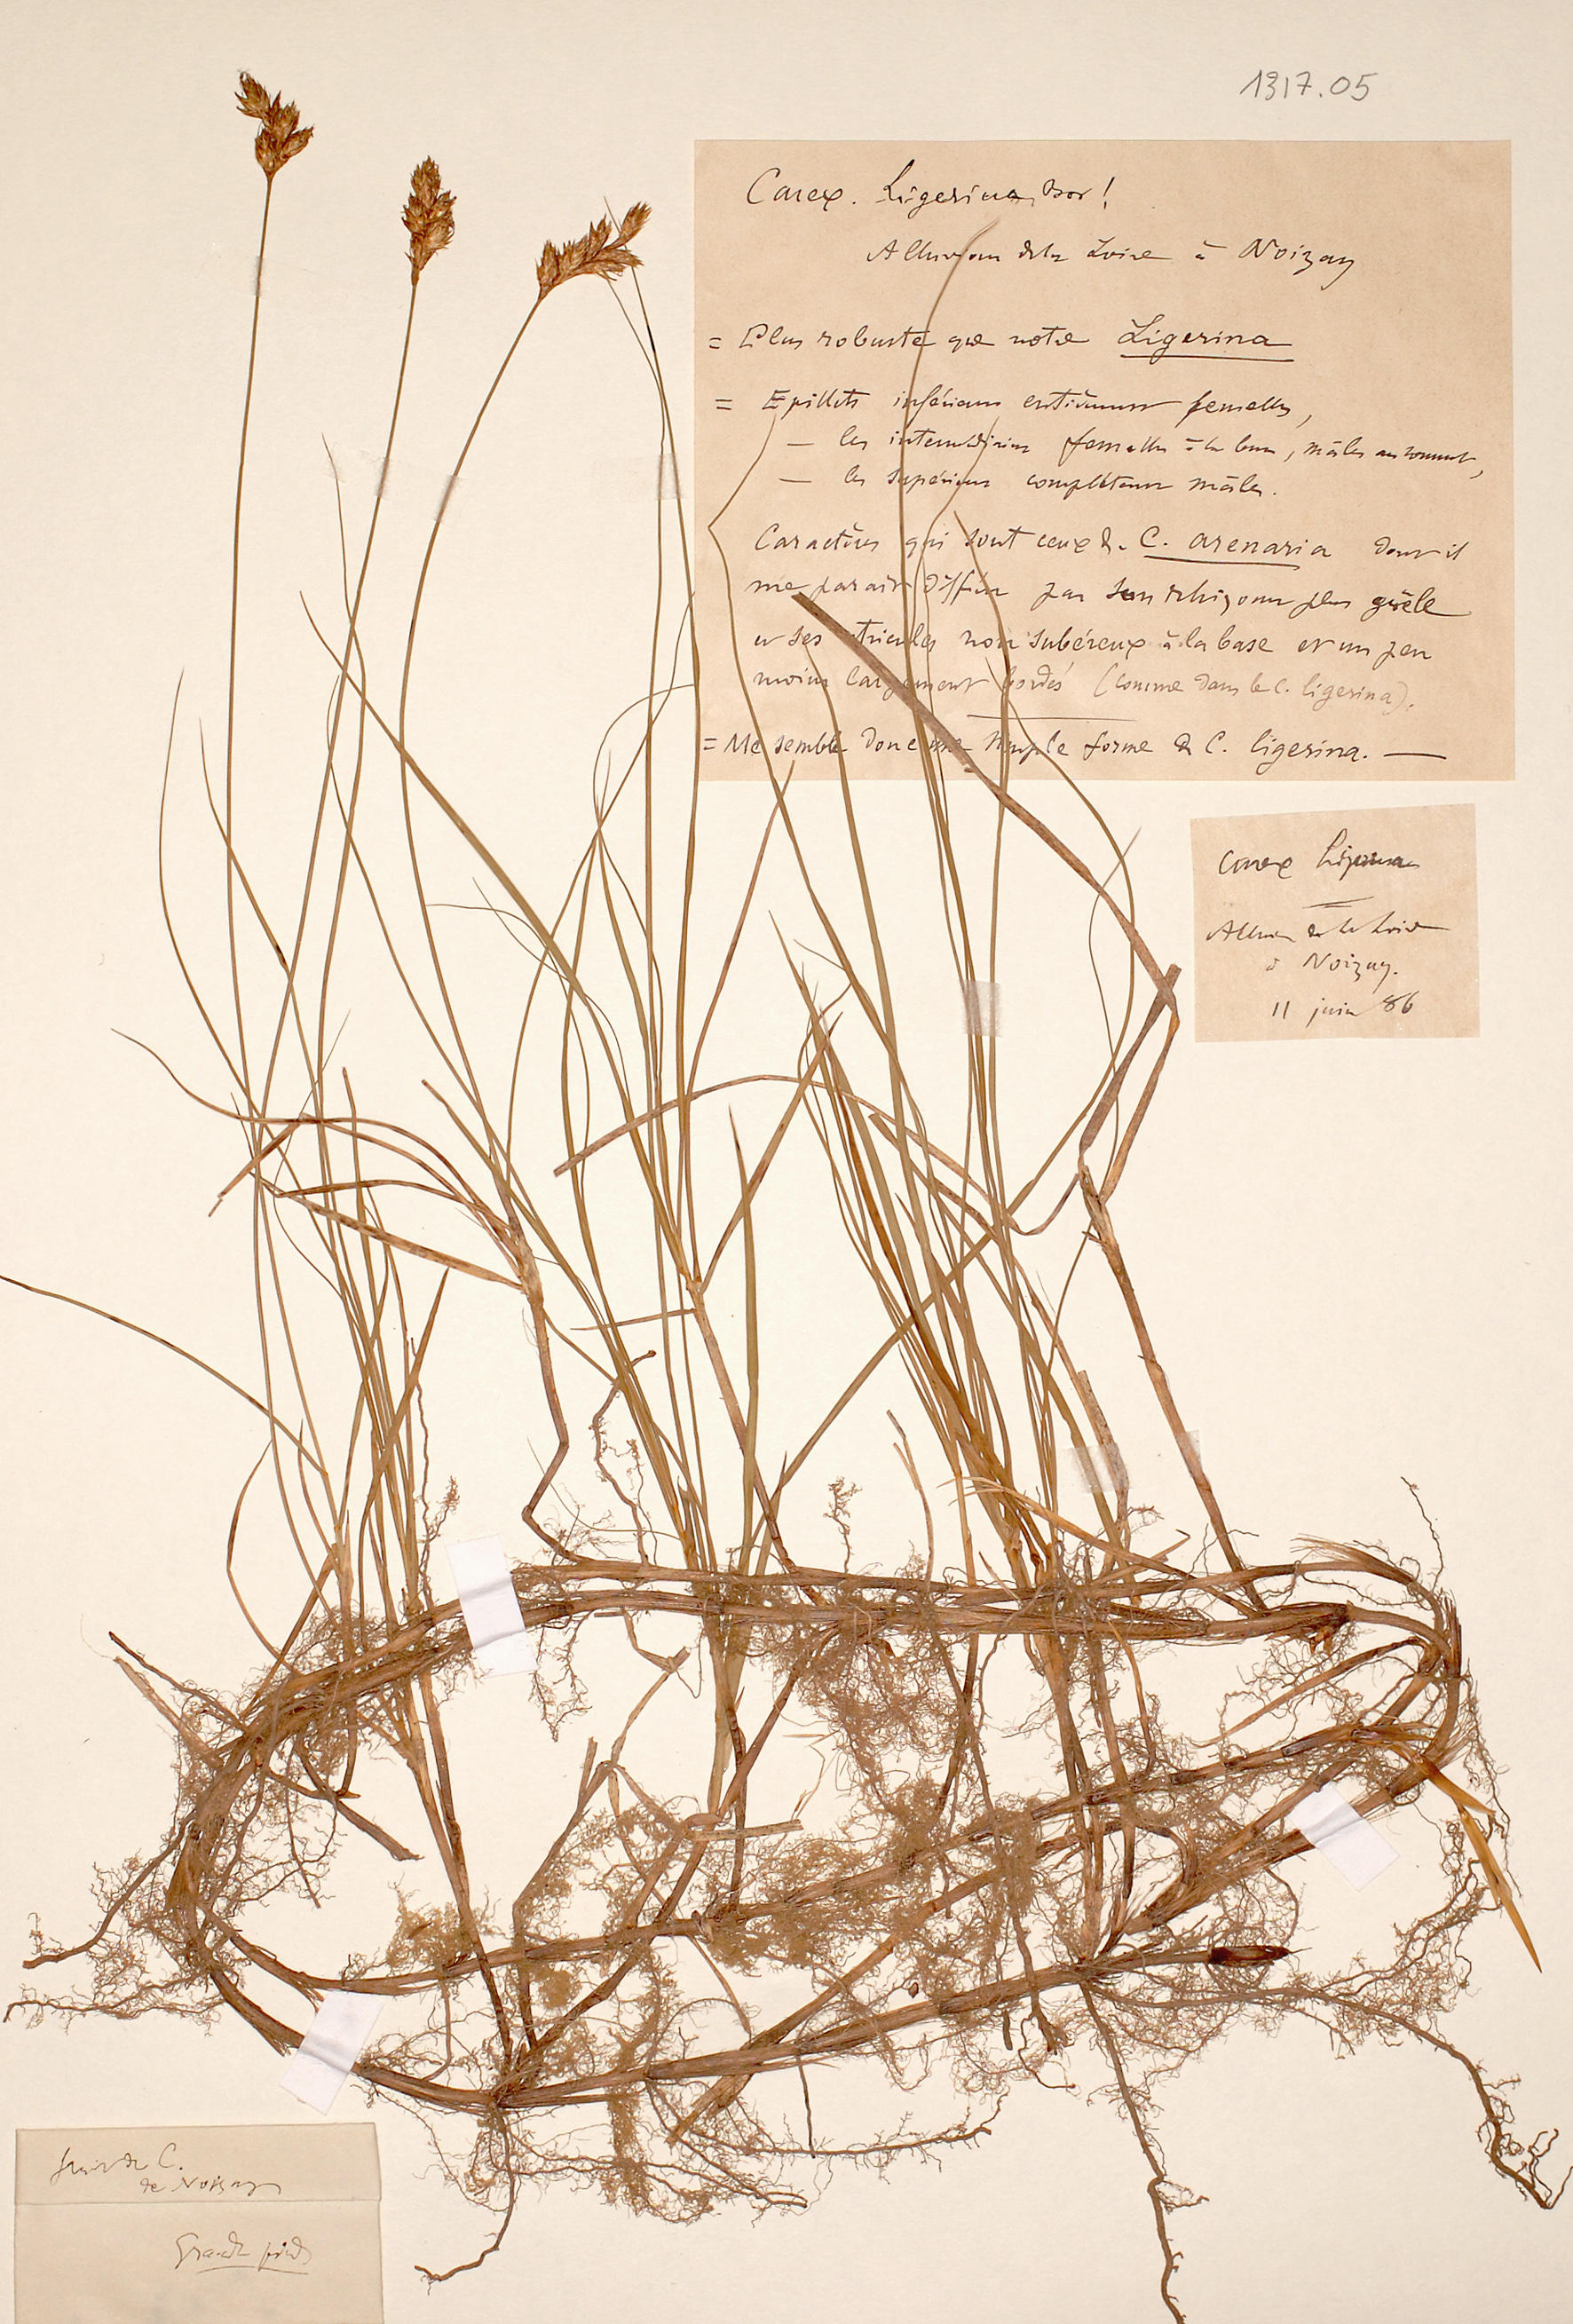 1317.05
Carex. Ligerina, Bor!
Alluvions de la Loire à Noizay
= Plus robuste que notre Ligerina
= Epillets inférieurs entièrement femelles,
— les intermédiaires femelles à la base, mâles au sommet,
— les supérieurs complètement mâles.
Caractères qui sont ceux de C. arenaria dont il
me parait différer par son rhizome plus grêle
et ses utricules non subéreux à la base et un peu
moins largement bordés (comme dans le C. ligerina).
= Me semble donc une simple forme de C. ligerina. —
Carex Ligerina
Alluvions de la Loire
à Noizay.
11 juin 86
de C.
de Noizay
Grands pieds